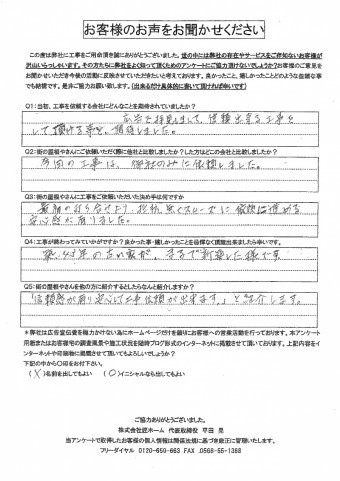 お客様のお声をお聞かせください
この度は弊社に工事をご用命頂き誠にありがとうございました。世の中には弊社の存在やサービスをご存知ないお客様が
沢山いらっしゃいます。その方たちに弊社をよく知って頂くためのアンケートにご協力頂けないでしょうか?お客様のご意見を
お聞かせいただき今後の活動に反映させていただきたいと考えております。良かったこと、嬉しかったことどのような些細な事
でも結構です。是非ご協力お願い致します。(出来るだけ具体的に書いて頂ければ幸いです)
Q1:当初、工事を依頼する会社にどんなことを期待されていましたか?
広告を拝見しまして、信頼出来る工事を
して頂ける事を、期待しました。
Q2:街の屋根やさんにご依頼いただく際に他社と比較しましたか?した方はどこの会社と比較しましたか?
今回の工事は、御社のみに依頼しました。
Q3:街の屋根やさんに工事をご依頼いただいた決め手は何ですか
最初の打ち合せより、
スムーズに依頼は進める
安心感が有りました。
Q4:工事が終わってみていかがですか?良かった事・嬉しかったことを忌憚なく頂戴出来ましたら幸いです。
築43年の古い家が、まるで新築した様です
Q5:街の屋根やさんを他の方に紹介するとしたらなんと紹介しますか?
「信頼感が有り安心して工事依頼が出来ます。」と紹介します。
*弊社は広告宣伝費を極力かけない為にホームページだけを頼りにお客様への営業活動を行っております。本アンケート
用紙またはお客様宅の調査風景や施工状況を随時ブログ形式のインターネットに掲載させて頂いております。上記内容をイ
ンターネットや印刷物に掲載させて頂いてもよろしいでしょうか?
下記の中から〇印をお付下さい。
(X)名前を出してもよい (O)イニシャルなら出してもよい
ご協力ありがとうございました。
株式会社匠ホーム 代表取締役 平田 晃
当アンケートで取得したお客様の個人情報は関係法規に基づき厳正に管理いたします。
フリーダイヤル 0120-659-663 FAX.0568-55-1388